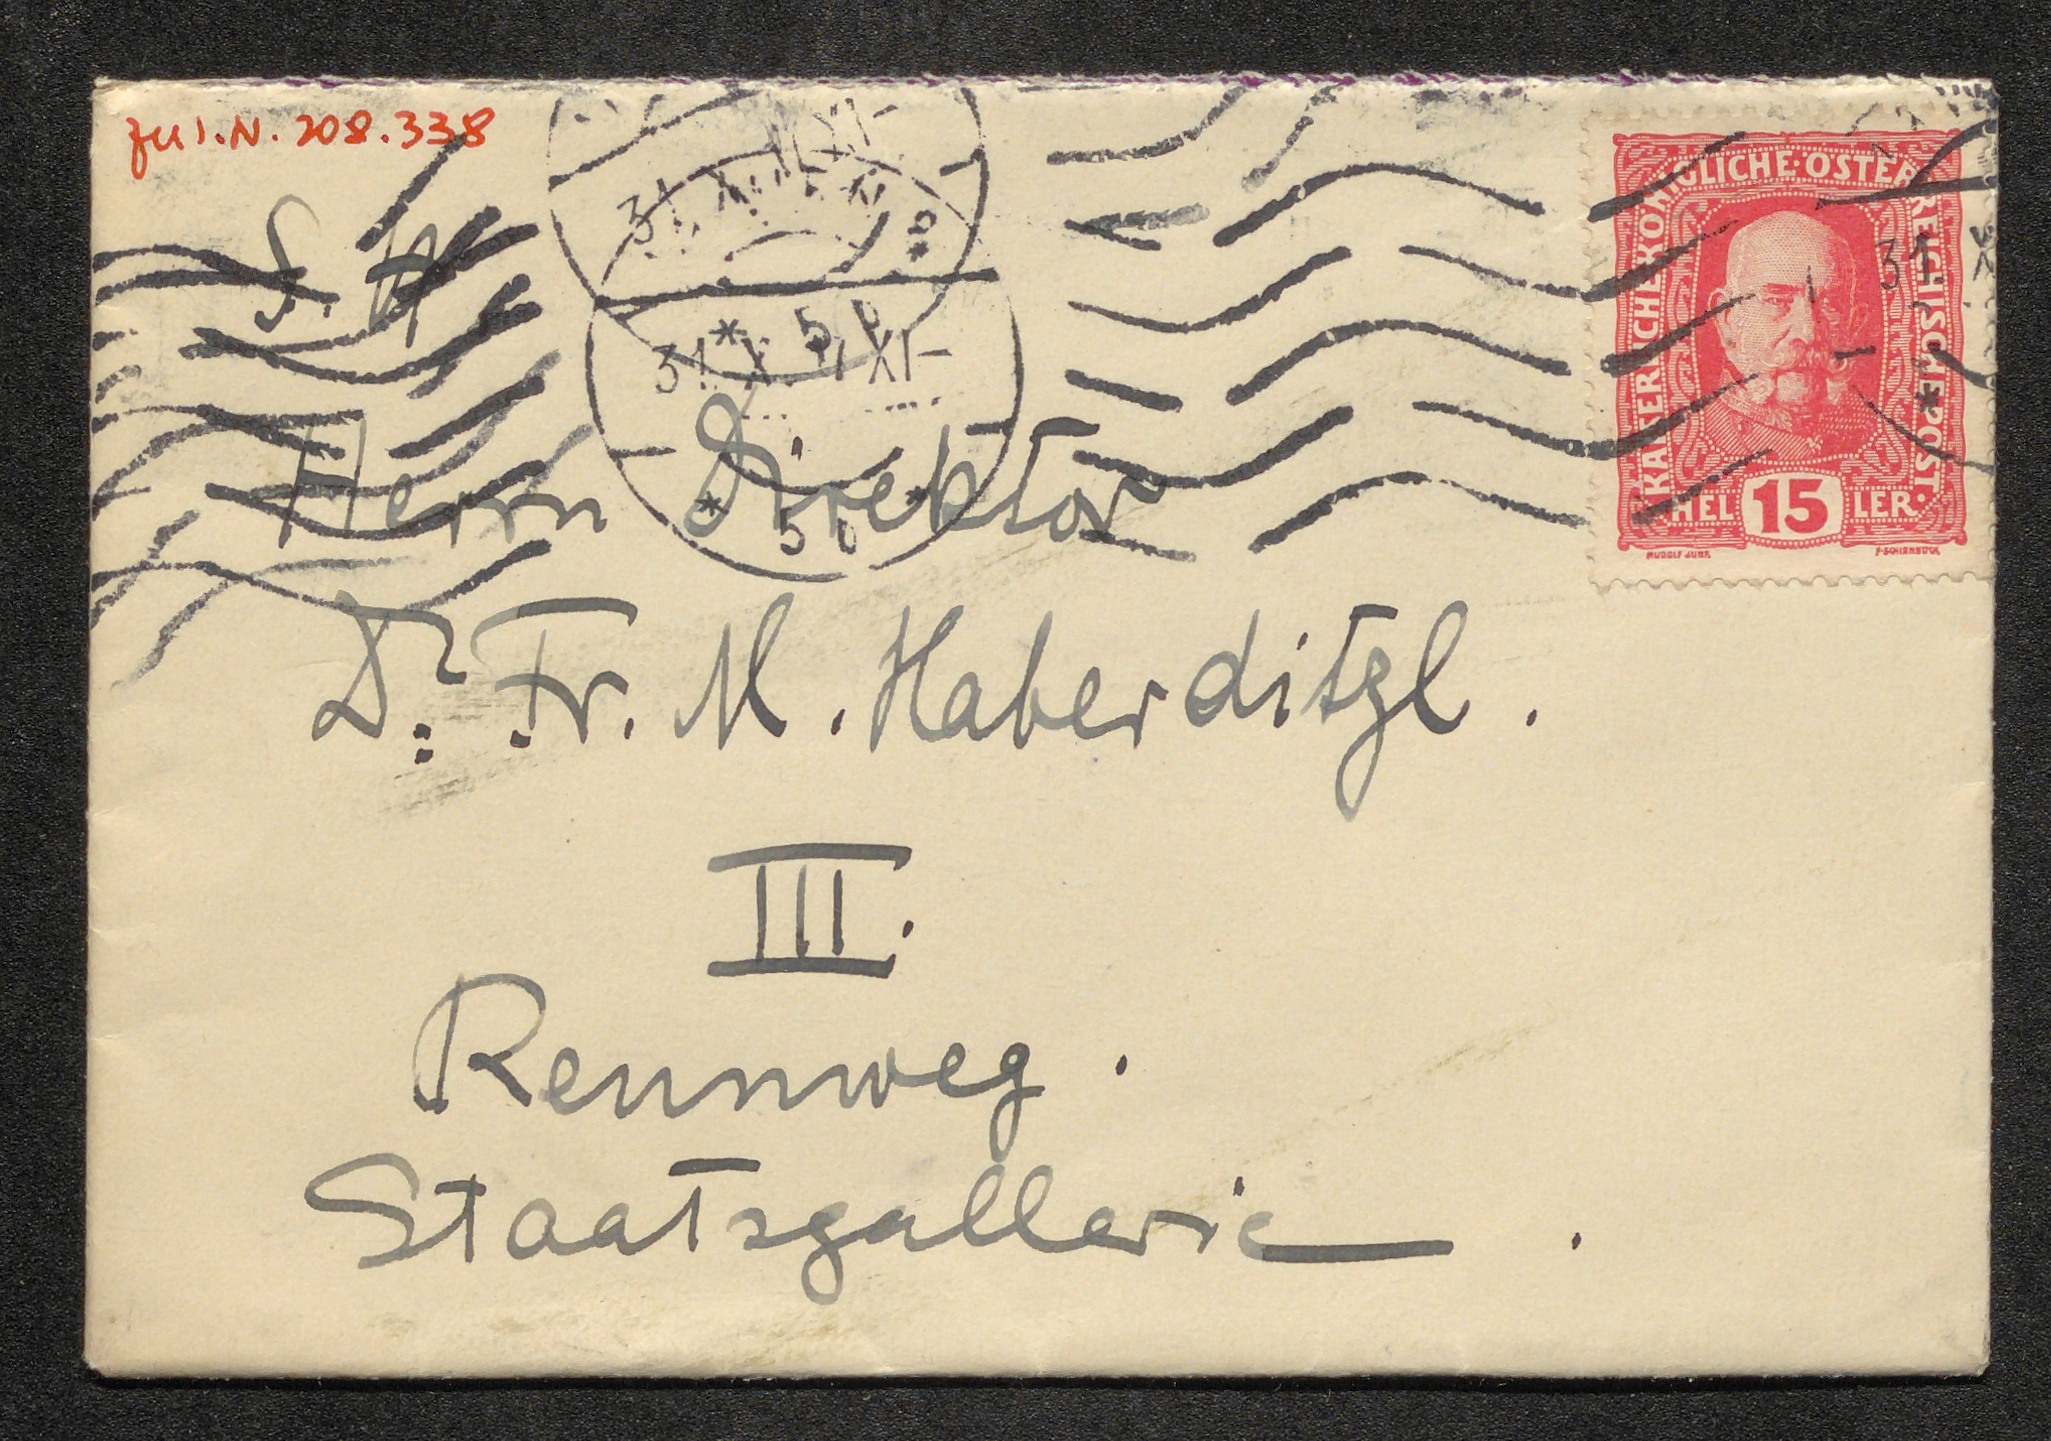 zu I.N. 208.338
S. H.
31. X. 17 XI-
* 5 b *
KAISERLICHE·KÖNIGLICHE·ÖSTERREICHISCHE·POST·
HEL 15 LER
RUDOLF JUNK
F·SCHIRNBÖCK
Herrn Direktor
Dr. Fr. M. Haberditzl.
III.
Rennweg.
Staatsgallerie.